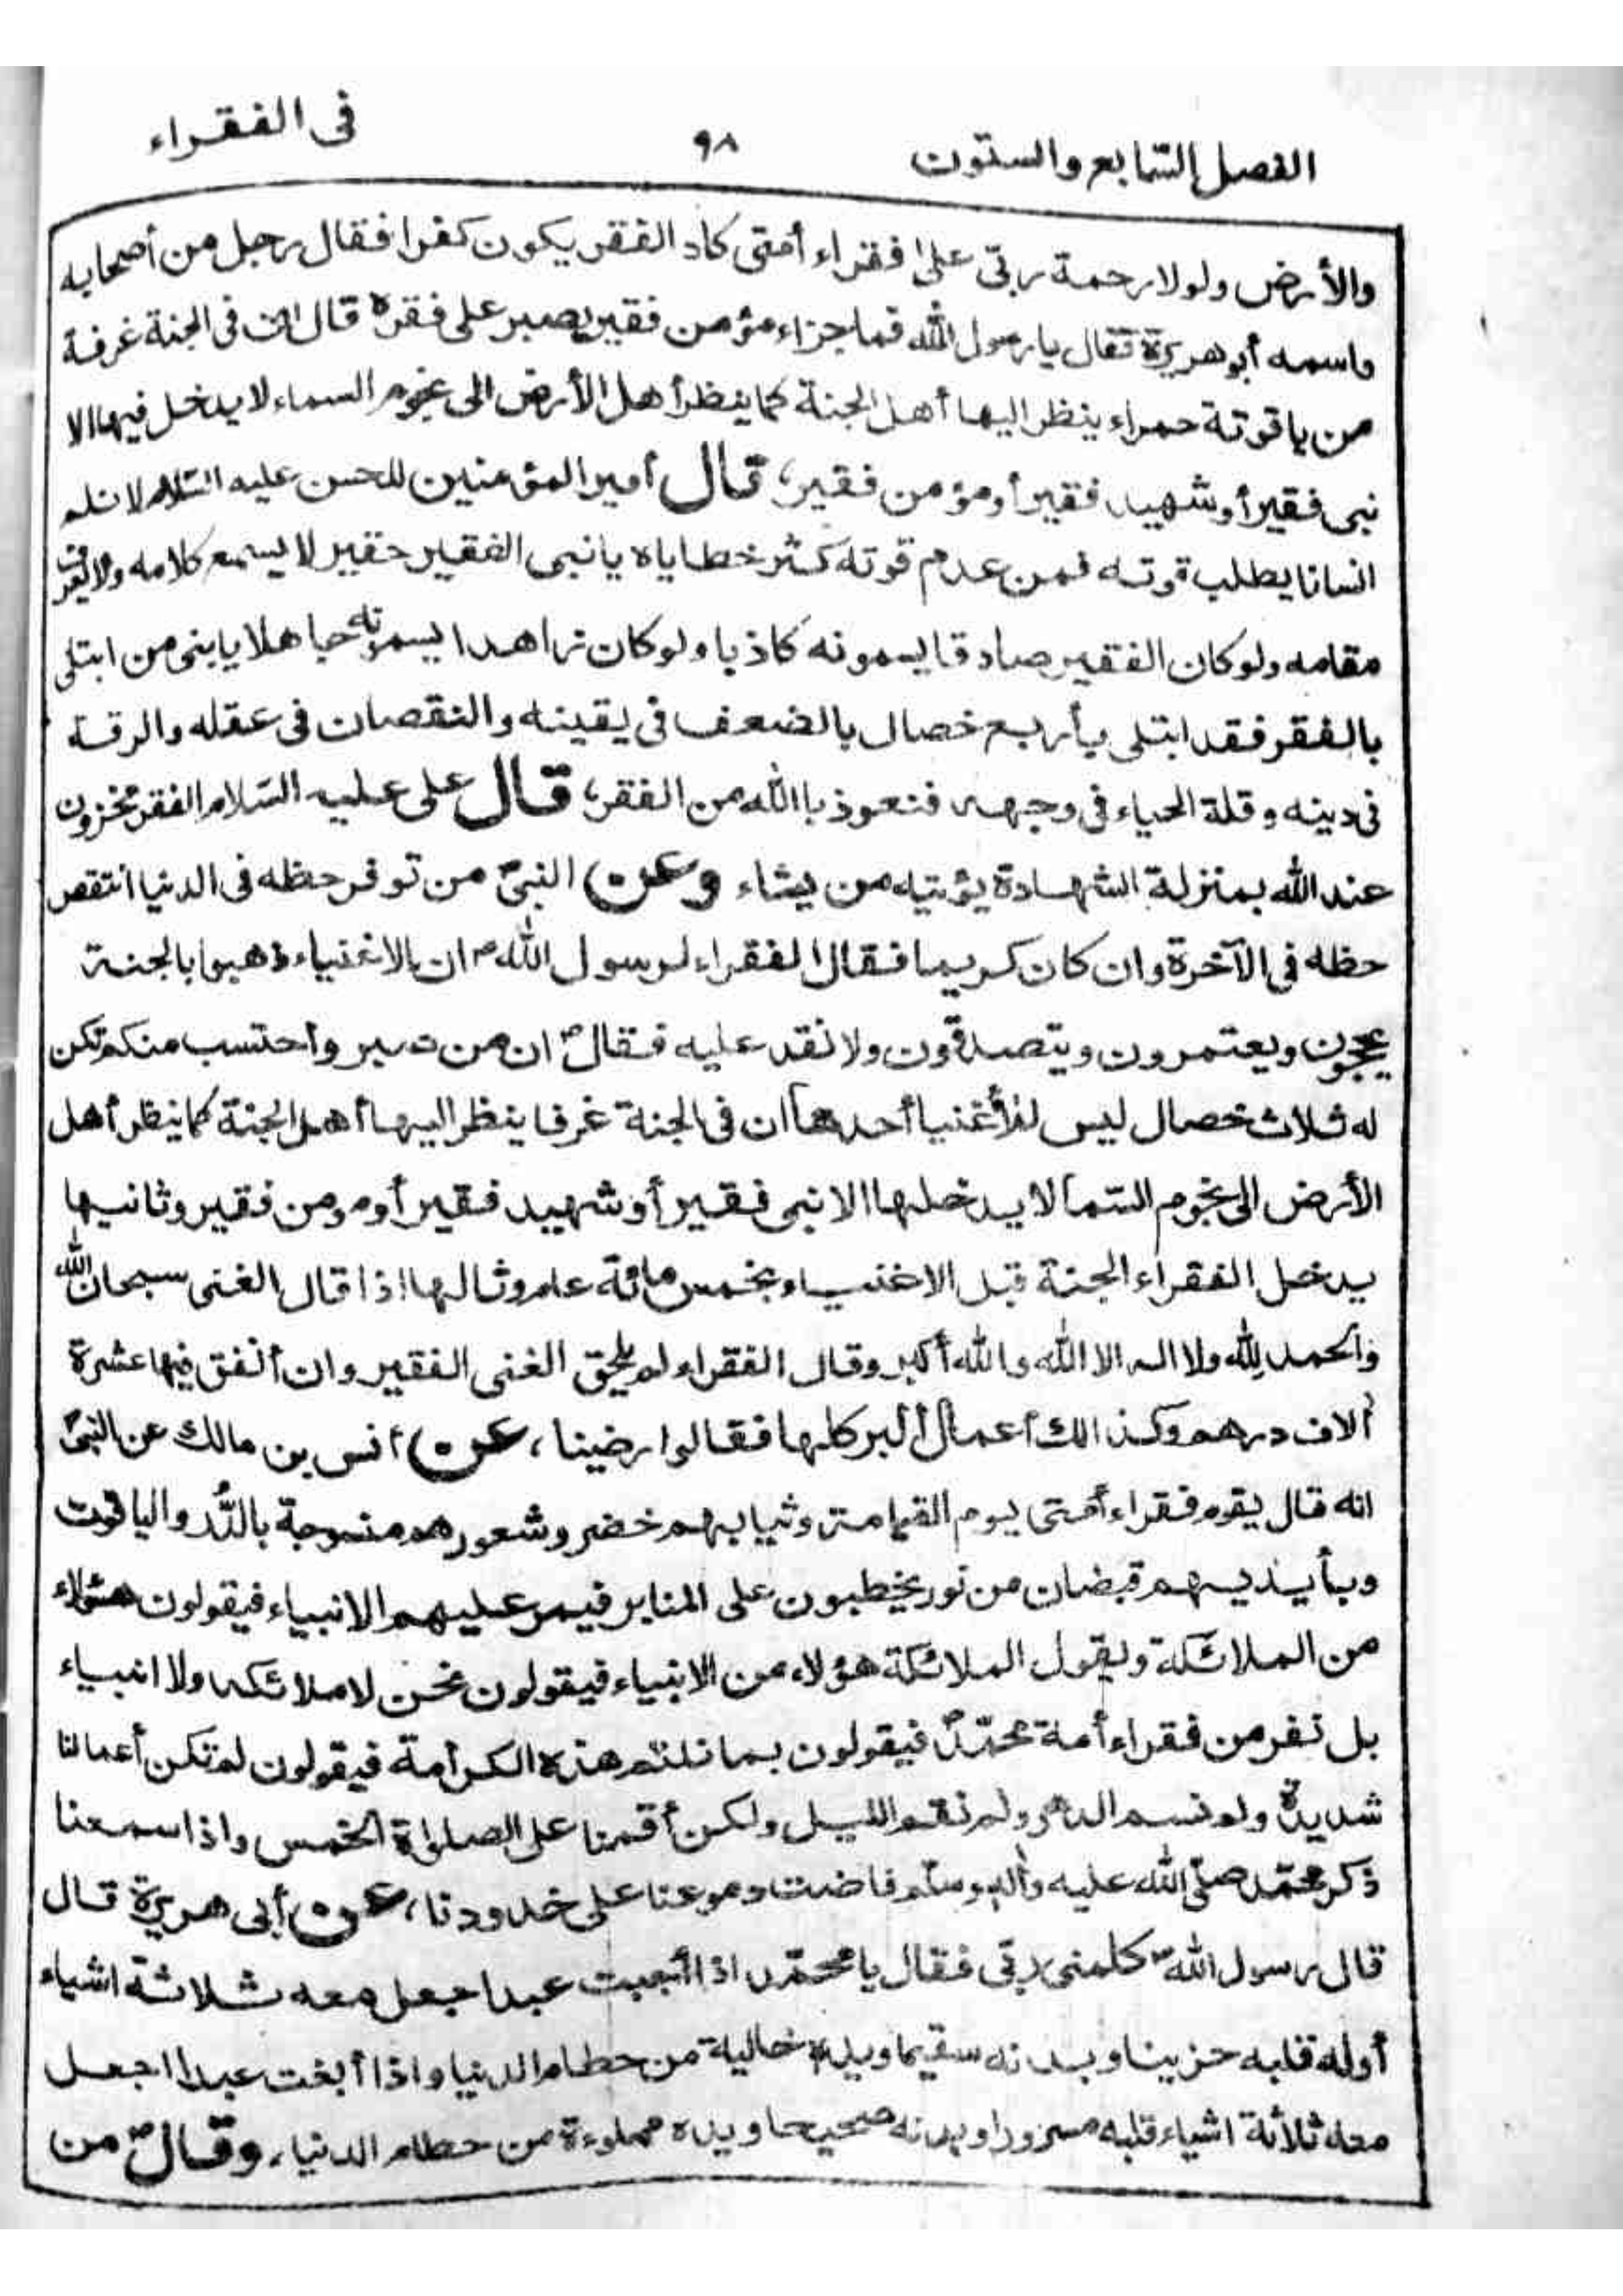 الفصل السّابع والستون
٩٨
فى الفقراء
والأرض ولولا رحمة ربّى على فقراء أمتى كاد الفقر يكون كفرا فقال رجل من أصحابه
واسمه أبو هريرة فقال يا رسول الله فما جزاء مؤمن فقير يصبر على فقره قال ان فى الجنة غرفة
من ياقوتة حمراء ينظر اليها أهل الجنة كما ينظر أهل الأرض الى نجوم السماء لا يدخل فيها الا
نبى فقير أو شهيد فقير أو مؤمن فقير، قال أمير المؤمنين للحسن عليه السّلام لا تلم
انسانا يطلب قوته فمن عدم قوته كثر خطاياه يا نبى الفقير حقير لا يسمع كلامه ولا يعرف
مقامه ولو كان الفقير صادقا يسمونه كاذبا ولو كان زاهدا يسمونه جاهلا يا بنى من ابتلى
بالفقر فقد ابتلى بأربع خصال بالضعف فى يقينه والنقصان فى عقله والرقة
فى دينه وقلة الحياء فى وجهه فنعوذ باالله من الفقر، قال على عليه السّلام الفقر مخزون
عند الله بمنزلة الشهادة يؤتيه من يشاء وعن النبىّ من توفر حظه فى الدنيا انتقص
حظه فى الآخرة وان كان كريما فقال الفقراء لرسول الله ص ان الاغنياء ذهبوا بالجنة
يحجون ويعتمرون ويتصدقون ولا نقد عليه فقال ص ان من صبر واحتسب منكم تكن
له ثلاث خصال ليس للأغنيا أحدها ان فى الجنة غرفا ينظر اليها أهل الجنة كما ينظر أهل
الأرض الى نجوم السّما لا يدخلها الا نبى فقير أو شهيد فقير أو مومن فقير وثانيها
يدخل الفقراء الجنة قبل الاغنياء بخمس مائة عام وثالها اذا قال الغنى سبحان الله
والحمد لله ولا اله الا الله والله أكبر وقال الفقراء لم يلحق الغنى الفقير وان أنفق فيها عشرة
آلاف درهم وكذالك أعمال ألبر كلها فقالوا رضينا، عن أنس بن مالك عن النبىّ
انه قال يقوم فقراء أمتى يوم القيامة وثيابهم خضر وشعورهم منسوجة بالدُّر والياقوت
وبأيديهم قبضان من نور يخطبون على المنابر فيمر عليهم الانبياء فيقولون هئولاء
من الملائكة ويقول الملائكة هؤلاء من الانبياء فيقولون نحن لا ملائكه ولا انبياء
بل نفر من فقراء أمة محمّد ص فيقولون بما نلتم هذه الكرامة فيقولون لم تكن أعمالنا
شديدة ولم نسم الدهر ولم نقم الليل ولكن أقمنا على الصلواة الخمس واذا سمعنا
ذكر محمّد صلّى الله عليه وآله وسلّم فاضت دموعنا على خدودنا، عن أبى هريرة قال
قال رسول الله ص كلمنى ربّى فقال يا محمّد اذا أحببت عبدا جعل معه ثلاثة اشياء
أوله قلبه حزينا وبدنه سقيما ويده خالية من حطام الدنيا واذا أبغت عبدا اجعل
معه ثلاثة اشياء قلبه مسرورا وبدنه صحيحا ويده مملوءة من حطام الدنيا، وقال ص من